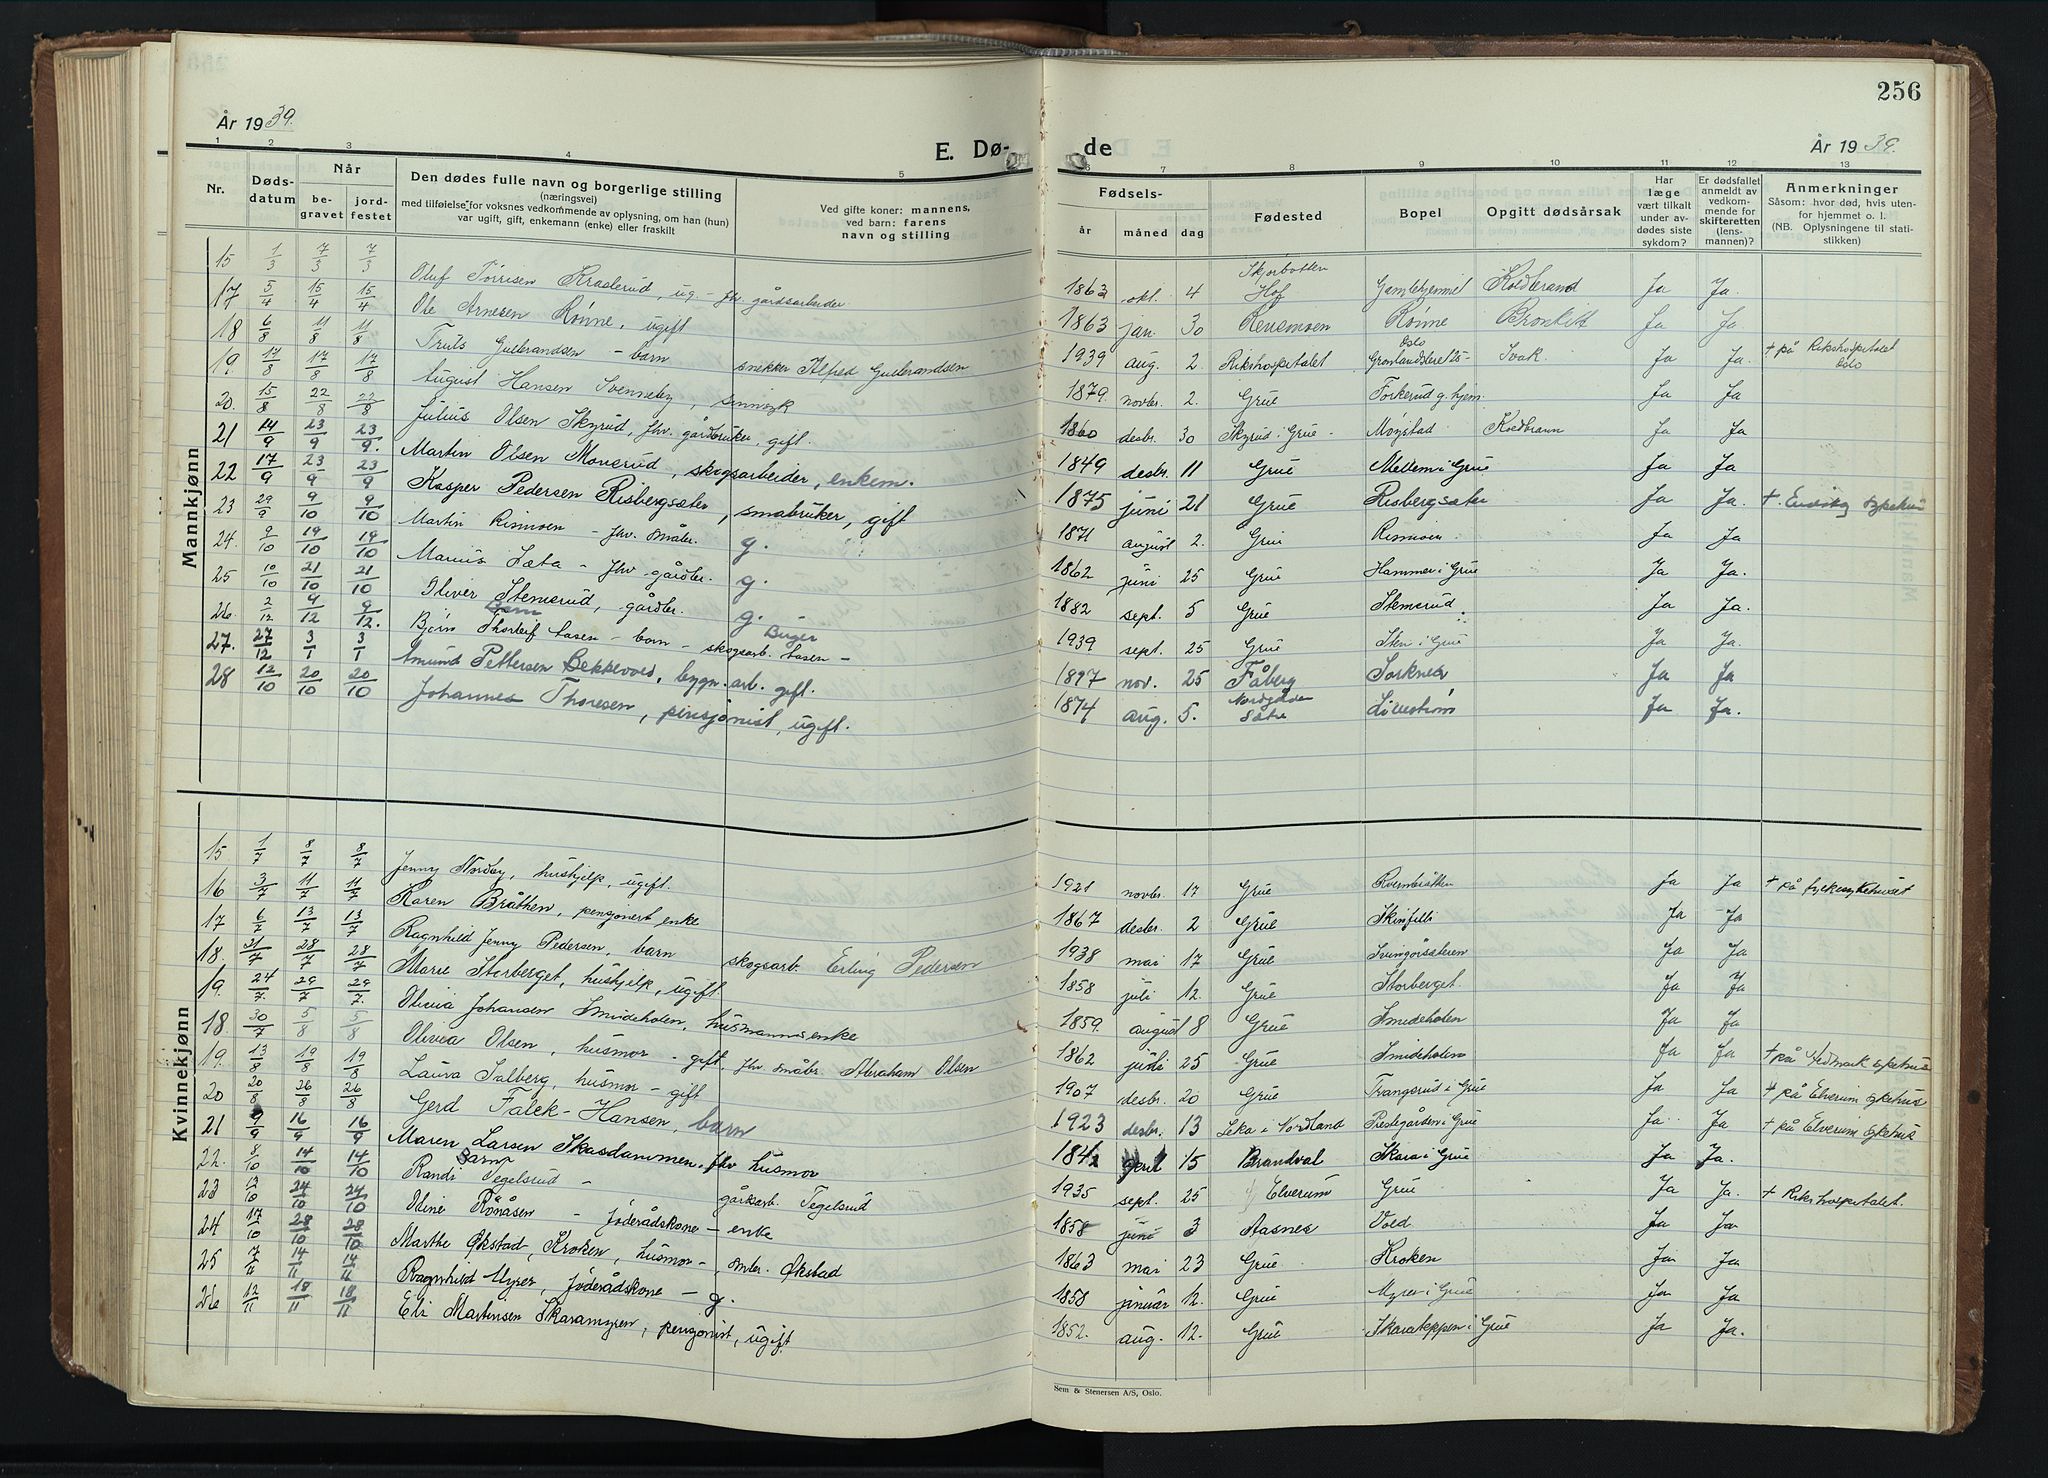 256
År 1939.
E. Dø-
de
År 1939.
1 2 3 4 5 6 7 8 9 10 11 12 13
Nr.
Døds-
datum
Når
be-
gravet
jord-
festet
Den dødes fulle navn og borgerlige stilling
(næringsvei)
med tilføielse for voksnes vedkommende av oplysning, om han (hun)
var ugift, gift, enkemann (enke) eller fraskilt
Ved gifte koner: mannens,
ved barn: farens
navn og stilling
Fødsels-
år
måned
dag
Fødested
Bopel
Opgitt dødsårsak
Har
læge
vært tilkalt
under av-
dødes siste
sykdom?
Er dødsfallet
anmeldt av
vedkom-
mende for
skifteretten
(lens-
mannen)?
Anmerkninger
Såsom: hvor død, hvis uten-
for hjemmet o. l.
(NB. Oplysningene til stati-
stikken)
Mannkjønn
15 1/3 7/3 7/3 Oluf Tørrisen Kraslerud, ug. - fhv. gårdsarbeider 1863 okt. 4 Hof Gamlehjemmet Koldbrand Ja Ja.
17 5/4 15/4 15/4 Ole Arnesen Rønne, ugift 1863 jan. 30 Rensmoen Rønne Bronkitt Ja Ja
18 6/8 11/8 11/8 Truls Gulbrandsen - barn snekker Alfred Gulbrandsen 1939 aug. 2. Rikshospitalet Oslo Grønlandsleret Svak. Ja Ja. + på Rikshospitalet Oslo
19. 17/8 17/8 August Hansen Svenneby, sinnsyk 1879. novbr. 2. Grue Forkerud g. hjem. Ja Ja
20. 15/8 22/8 22/8 Julius Olsen Skyrud, fhv. gårdbruker, gift. 1860 desbr. 30 Skyrud i Grue - Møystad Koldbrann Ja Ja
21 14/9 23/9 23/9. Martin Olsen Monerud, skogsarbeider, enkem. 1849 desbr. 11 Grue Mellem i Grue Ja Ja
22 17/9 23/9 23/9 Kasper Pedersen Risbergsæter, småbruker, gift 1875 juni 21 Grue Risbergsæter Ja Ja. +
23 29/9 9/10 9/10 Martin Rismoen - fhv. småbr. g. 1871 august 2. Grue Rismoen Ja Ja
24. 9/10 19/10 19/10 Marius Læta - fhv gårdbr. g. 1862 juni 25 Grue Hammer i Grue Ja Ja.
25 10/10 21/10 21/10 Oliver Stemerud, gårdbr. g. 1882 sept. 5 Grue Stemerud Ja Ja.
26. 2/12 9/12 9/12. Bjørn Thorleif Lasen - barn - skogsarb. Birger Lasen - 1939 sept. 25 Grue Sten i Grue Ja Ja
27. 27/12 3/1 3/1 Amund Pettersen Bekkevold, bygn. arb. gift. 1897 nov. 25 Fåberg Sorknes Ja Ja
28 12/10 20/10 20/10 Johannes Thoresen, pensjonist, ugift. 1874 aug. 5. Nordgården Sætre Lillestrøm Ja Ja.
Kvinnekjønn
15 1/7 8/7 8/7 Jenny Nordby, hushjelp, ugift. 1921 novbr. 17 Grue Kvernbråten Ja Ja + på fylkesykehuset
16 3/7 11/7 11/7 Karen Bråthen, pensjonert enke 1867 desbr. 2 Grue Skinfelli Ja Ja
17 6/7 13/7 13/7 Ragnhild Jenny Pedersen, barn skogsarb. Erling Pedersen 1938 mai 17 Grue Ja Ja
18. 21/7 28/7 28/7 Marie Storberget, hushjelp, ugift. 1858 juli 12. Grue Storberget. Ja Ja
19. 24/7. 29/7 29/7. Olivia Johansen Smideholen, husmannsenke 1859. august 8 Grue Smideholen Ja Ja
18. 30/7 5/8 5/8 Olivia Olsen, husmor - gift, fhv småbr. Abraham Olsen 1862 juli 25 Grue Smideholen Ja Ja + på Hedmark sykehus
19. 13/8 19/8 19/8 Laura Salberg, husmor - gift 1907 desbr. 20 Grue Tvangsrud i Grue Ja Ja + på Elverum sykehus
20 20/8 26/8 26/8 Gerd Falck-Hansen, barn 1923 desbr. 13 Leka i Nordland Prestegården i Grue Ja Ja + på Elverum sykehus
21 9/9 16/9 16/9 Maren Larsen Skasdammen, fhv husmor 15 Brandval Skara i Grue Ja Ja.
22. 8/10 14/10 14/10 Barn Randi Tegelsrud - gårdsarb. Tegelsrud 1935 sept. 25 Elverum Grue Ja Ja. + Rikshospitalet.
23 13/10 24/10 24/10 Oline Rönåsen - föderådskone - enke 1858 juni 3 Aasnes Vold Ja Ja
24 17/10 28/10 28/10 Marthe Økstad, Kroken, husmor - smbr. Økstad 1863 mai 23 Grue Kroken Ja Ja
25 7/11 14/11 14/11 Ragnhild Myrer, föderådskone - g. 1858 januar 12. Grue Myrer i Grue Ja Ja
26 12/11 18/11 18/11 Eli Martinsen Skaramyren, pensjonist, ugift 1852. aug. 12. Grue Skarateppen i Grue Ja Ja.
Sem & Stenersen A/S, Oslo.